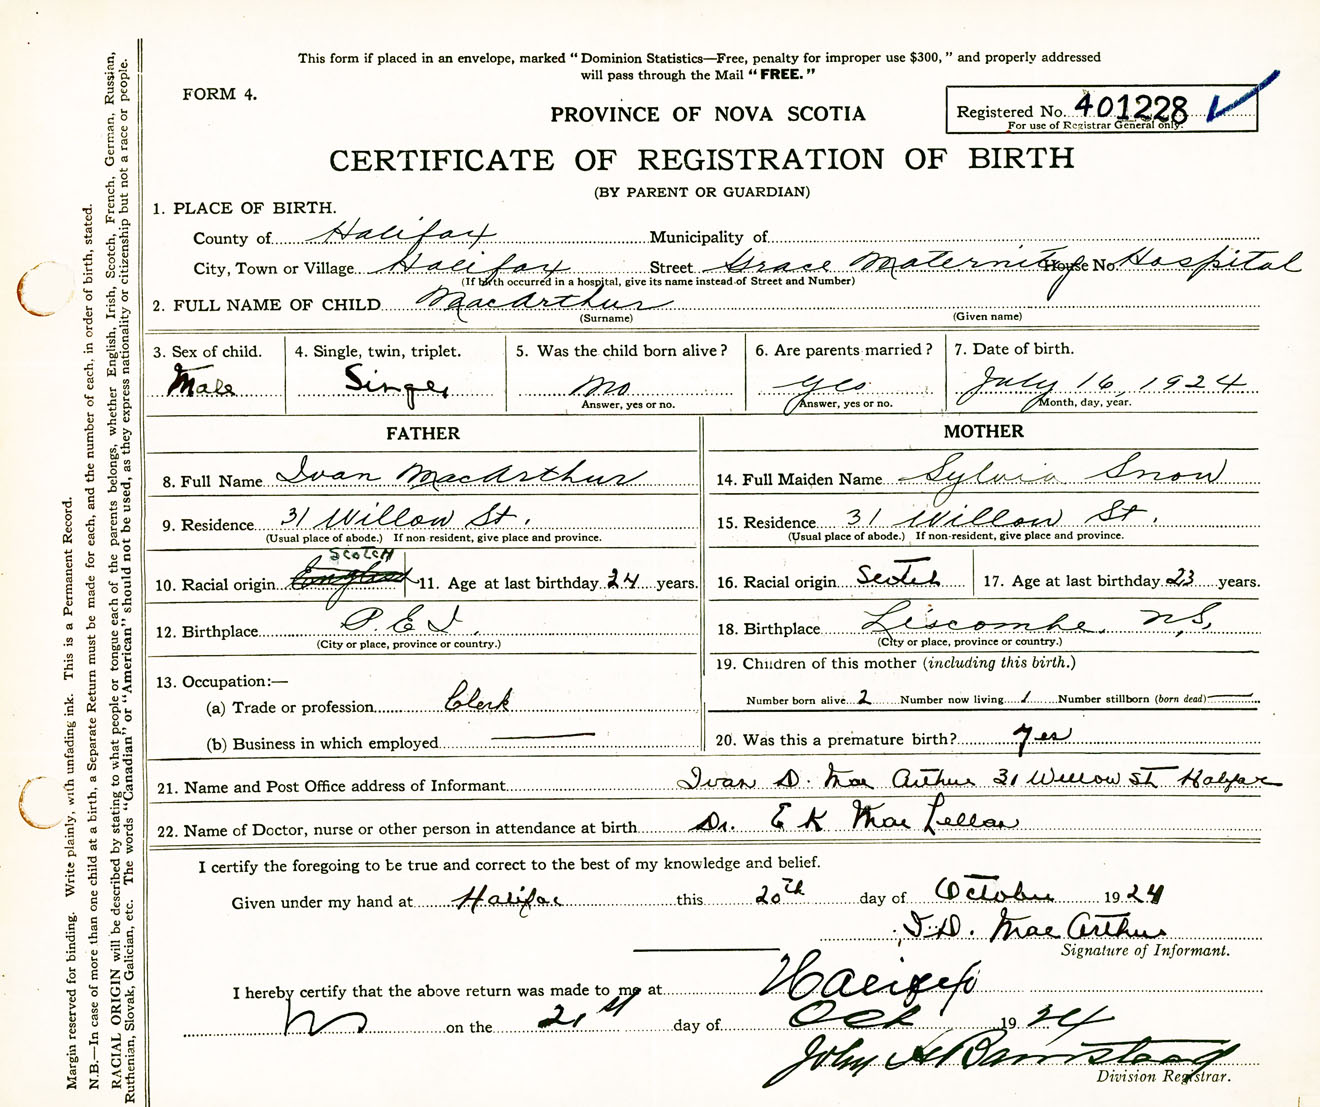 This form if placed in an envelope, marked “Dominion Statistics—Free, penalty for improper use $300,” and properly addressed
will pass through the Mail “FREE.”
FORM 4.
PROVINCE OF NOVA SCOTIA
Registered No. 401228
For use of Registrar General only.
CERTIFICATE OF REGISTRATION OF BIRTH
(BY PARENT OR GUARDIAN)
1. PLACE OF BIRTH.
County of Halifax Municipality of
City, Town or Village Halifax Street Grace Maternity House No. Hospital
(If birth occurred in a hospital, give its name instead of Street and Number)
2. FULL NAME OF CHILD MacArthur
(Surname) (Given name)
3. Sex of child. 4. Single, twin, triplet. 5. Was the child born alive? 6. Are parents married? 7. Date of birth.
Male Single no yes July 16, 1924
Answer, yes or no. Answer, yes or no. Month, day, year.
FATHER MOTHER
8. Full Name Ivan MacArthur 14. Full Maiden Name Sylvia Snow
9. Residence 31 Willow St. 15. Residence 31 Willow St.
(Usual place of abode.) If non-resident, give place and province. (Usual place of abode.) If non-resident, give place and province.
SCOTCH
10. Racial origin England 11. Age at last birthday 24 years. 16. Racial origin Scotch 17. Age at last birthday 23 years.
12. Birthplace P E I. 18. Birthplace Liscombe, N.S.
(City or place, province or country.) (City or place, province or country.)
19. Children of this mother (including this birth.)
13. Occupation:—
(a) Trade or profession Clerk Number born alive 2 Number now living 1 Number stillborn (born dead)
(b) Business in which employed 20. Was this a premature birth? yes
21. Name and Post Office address of Informant Ivan D. MacArthur 31 Willow St Halifax
22. Name of Doctor, nurse or other person in attendance at birth Dr. E K MacLellan
I certify the foregoing to be true and correct to the best of my knowledge and belief.
Given under my hand at Halifax this 20th day of October 1924
I. D. MacArthur
Signature of Informant.
I hereby certify that the above return was made to me at Halifax
on the 21st day of Oct 1924
John H Barnstead
Division Registrar.
Margin reserved for binding. Write plainly, with unfading ink. This is a Permanent Record.
N.B.—In case of more than one child at a birth, a Separate Return must be made for each, and the number of each, in order of birth, stated.
RACIAL ORIGIN will be described by stating to what people or tongue each of the parents belongs, whether English, Irish, Scotch, French, German, Russian,
Ruthenian, Slovak, Galician, etc. The words “Canadian” or “American” should not be used, as they express nationality or citizenship but not a race or people.